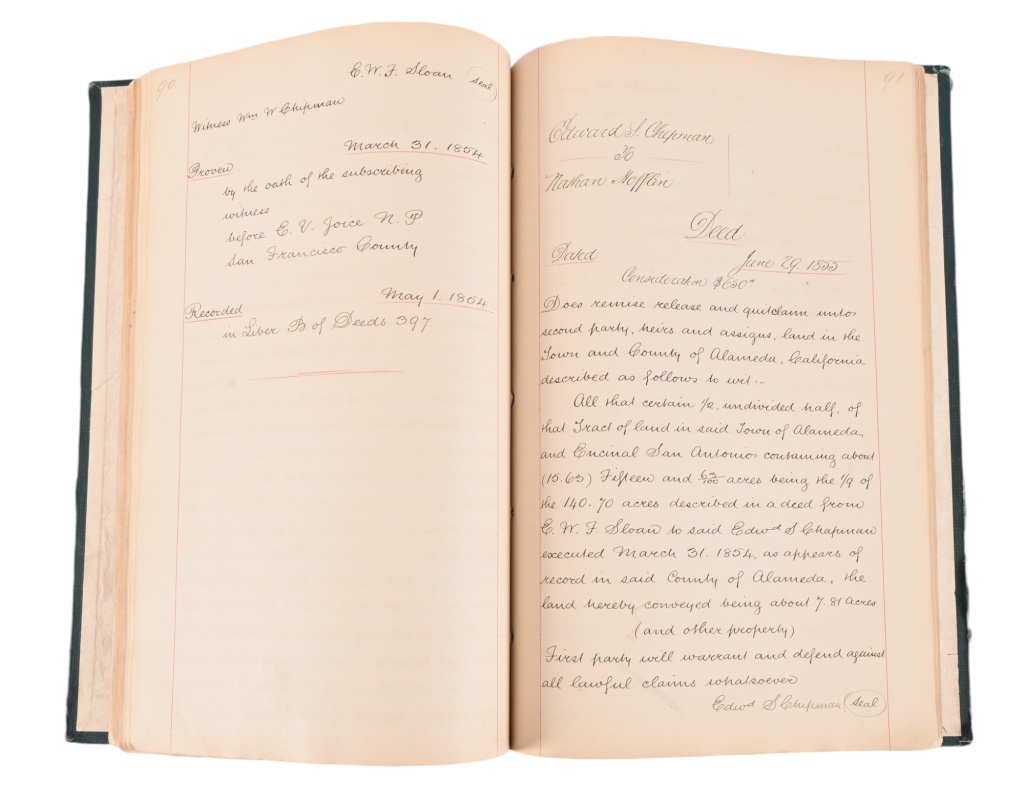 90
E. W. F. Sloan (seal)
Witness Wm W Chipman
March 31. 1854
Proven
by the oath of the subscribing
witness
before E. V. Joice N. P
San Francisco County
May 1. 1854
Recorded
in Liber B of Deeds 397
91
Edward S. Chipman
to
Nathan
Deed
Dated
June 29. 1855
Consideration $650
Does remise release and quitclaim unto
second party, heirs and assigns, land in the
Town and County of Alameda, California
described as follows to wit:-
All that certain 1/2, undivided half, of
that Tract of land in said Town of Alameda
and Encinal San Antonio containing about
(15.63) Fifteen and 63/100 acres being the 1/9 of
the 140.70 acres described in a deed from
E. W. F. Sloan to said Edwd S Chapman
executed March 31. 1854, as appears of
record in said County of Alameda, the
land hereby conveyed being about 7.81 Acres
(and other property)
First party will warrant and defend against
all lawful claims whatsoever
Edwd S Chipman (seal)